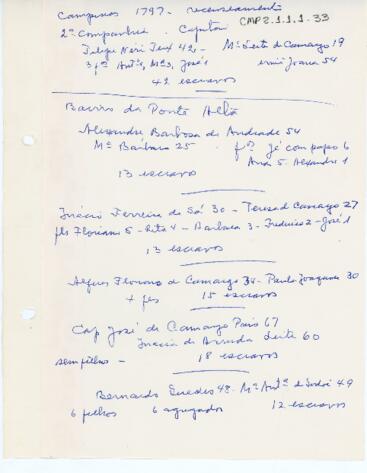 Campinas 1797 - recenseamento
CMP2.1.1.1-33
2ª Companhia. Capitão
Felipe Neri 42, - Mª Leite de Camargo 19
3 fos Antº, Mª 3, José 1 Joana 54
42 escravos
Bairro da Ponte Alta
Alexandre Barbosa de Andrade 54
Mª Bárbara 25 - fos Jé com papo 6
Ana 5 - Alexandre 1
13 escravos
Inácio Ferreira de Sá 30 - Teresa d Camargo 27
fls Floriano 5 - Rita 4 - Barbara 3 - Frederico 2 - José 1
13 escravos
Alferes Floriano de Camargo 34 - Paula Joaquina 30
4 fos 15 escravos
Cap José de Camargo Pais 67
Inácia de Arruda Leite 60
sem filhos - 18 escravos
Bernardo Guedes 48 - Mª Antª de 49
6 filhos 6 agregados 12 escravos